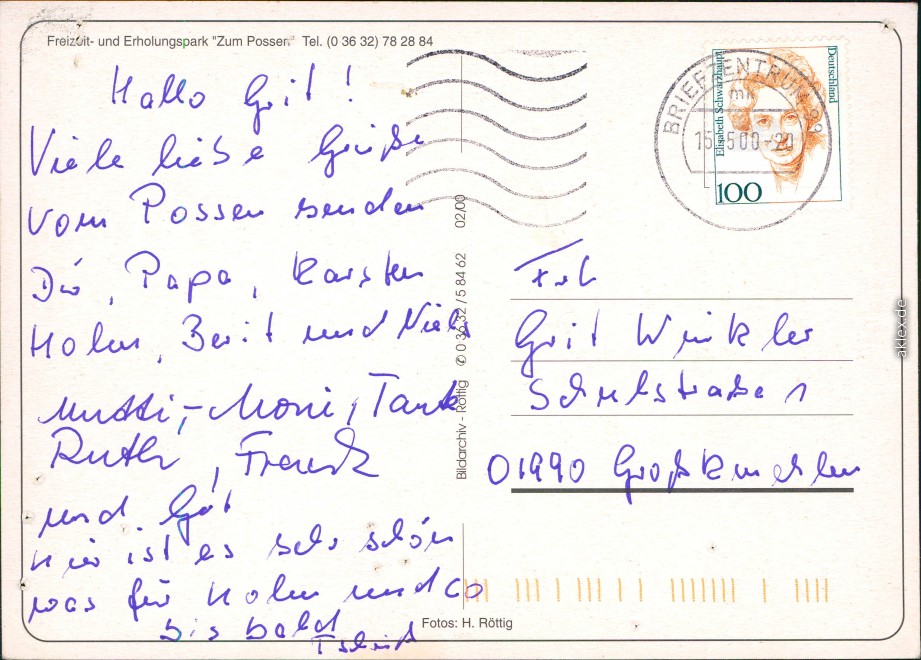 Freizeit- und Erholungspark "Zum Possen" Tel. (0 36 32) 78 28 84
Hallo Grit!
Viele liebe Grüße
vom Possen senden
Dir, Papa, Karsten
Holm, Berit und Niels
Mutti, Moni, Tante
Ruth, Frank
und
Hier ist es sehr schön
was für Holm und Co
bis bald
Tschüß
Bildarchiv - Röttig ✆ 0 36 32 / 5 84 62 02/00
Fotos: H. Röttig
BRIEFZENTRUM 99
mk
15.5.00-20
Elisabeth Schwarzhaupt
Deutschland
100
Grit Winkler
Schulstraße 1
01990 Großkmehlen
aklex.de